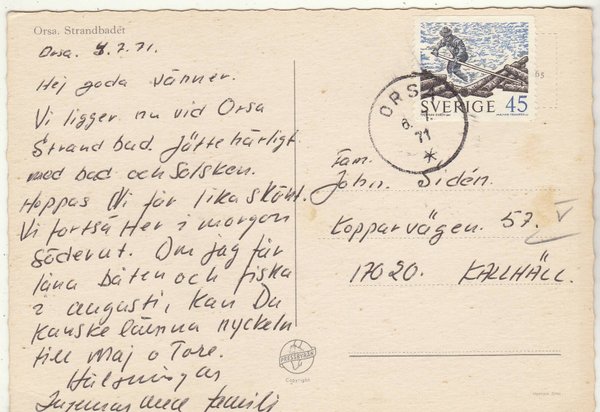 Orsa. Strandbadet
Orsa. 4.7.71.
Hej goda vänner.
Vi ligger nu vid Orsa
Strand bad. Jättehärligt
med bad och Solsken.
Hoppas Ni får lika skönt.
Vi fortsätter i morgon
söderut. Om jag får
låna båten och fiska
i augusti, kan Du
kanske lämna nyckeln
till Maj o Tore.
Hälsningar
Ingemar med familj
ORSA
71
SVERIGE 45
Fam.
John. Sidén.
Kopparvägen. 57.
17020. KALLHÄLL.
PRESSBYRÅN
Copyright